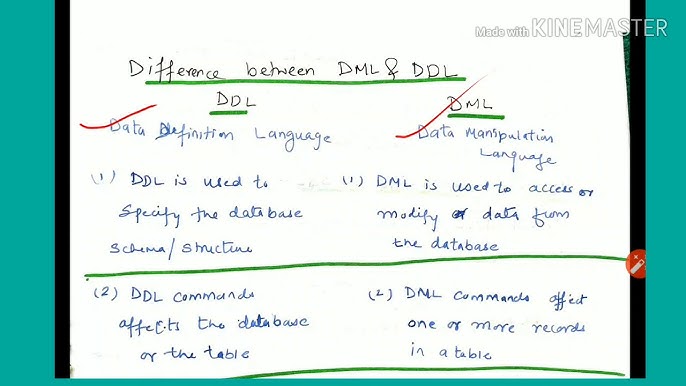 Made with KINEMASTER
Difference between DML & DDL
DDL
Data Definition Language
(1) DDL is used to
Specify the database
Schema/Structure
(2) DDL commands
affects the database
or the table
DML
Data Manipulation
Language
(1) DML is used to access or
modify data from
the database
(2) DML commands affect
one or more records
in a table